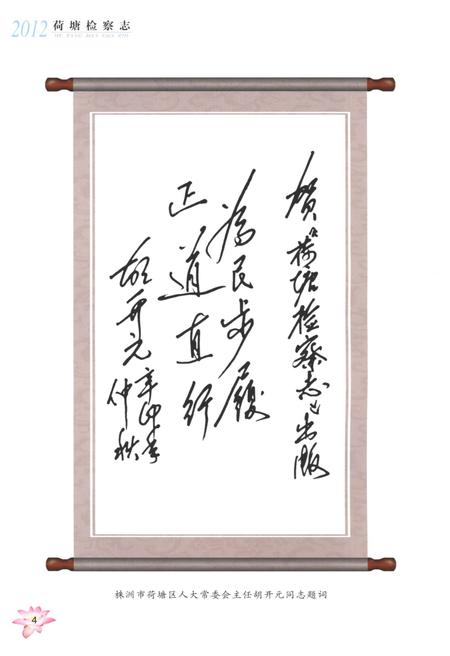 2012 荷塘检察志
HE TANG JIAN CHA ZHI
贺《荷塘检察志》出版
為民步履
正道直行
胡开元 辛卯年
仲秋
株洲市荷塘区人大常委会主任胡开元同志题词
4